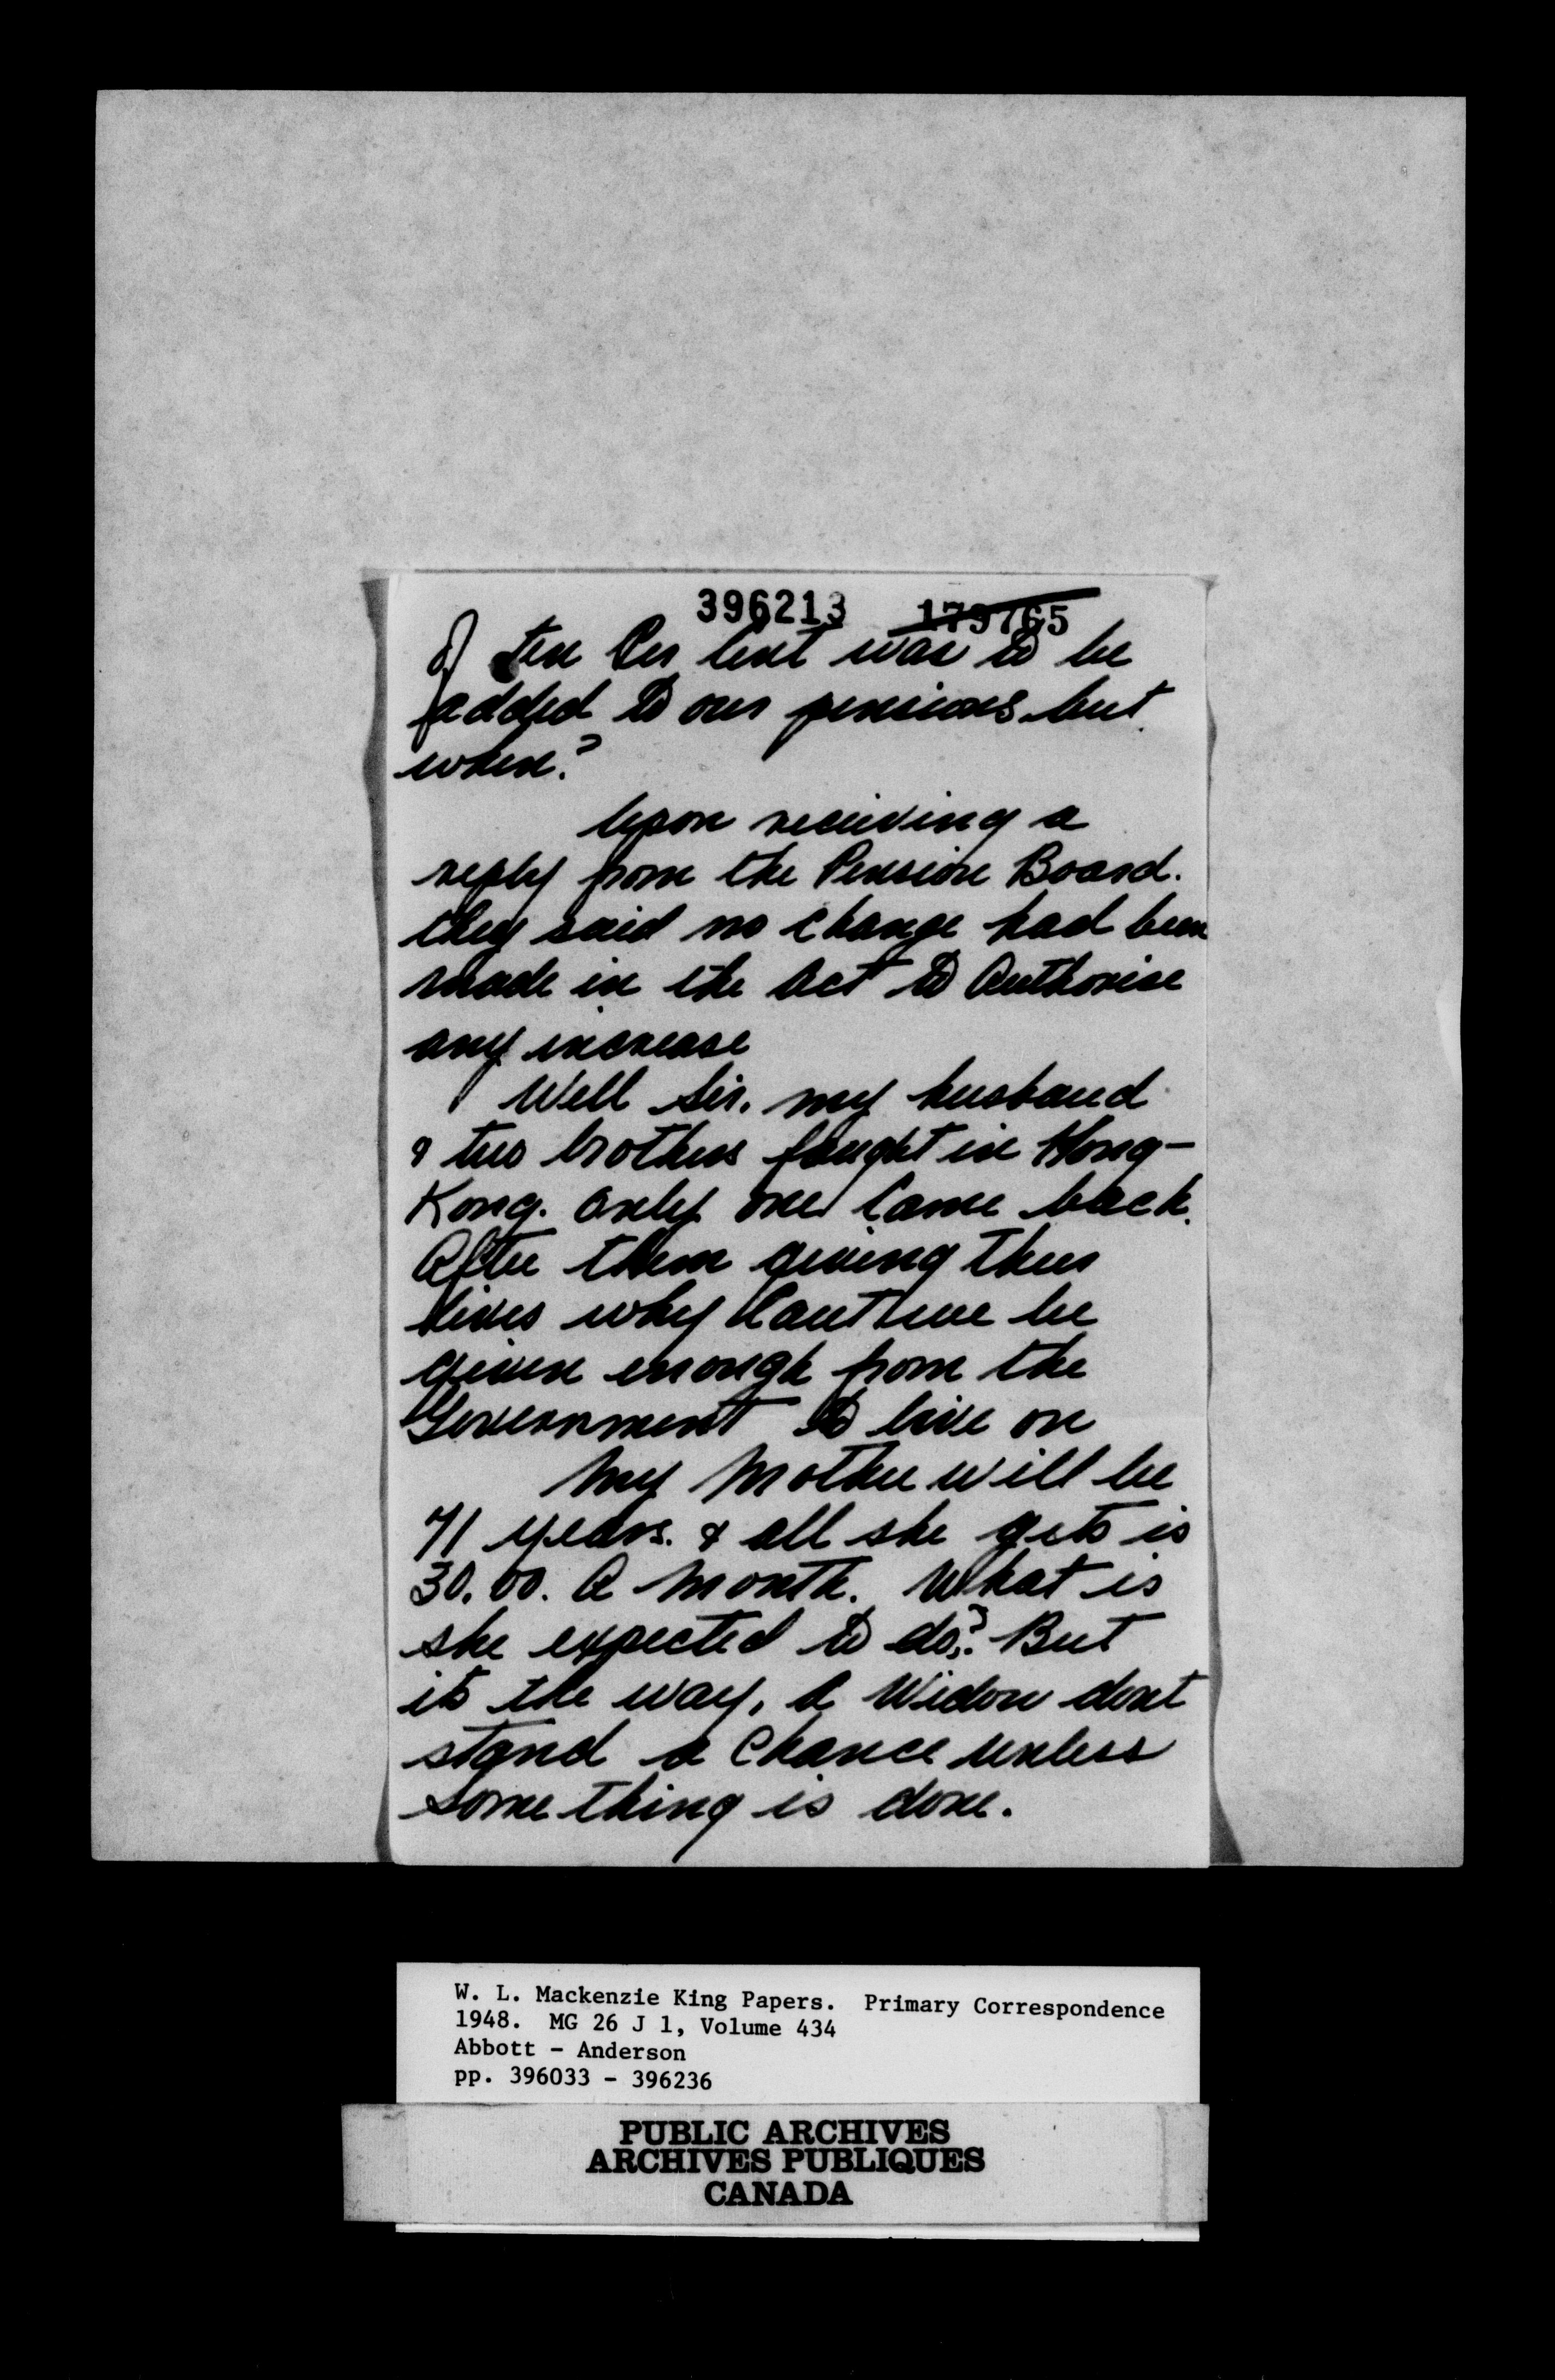 396213 179765
of ten Per Cent was to be
added to our pensions but
when?
Upon receiving a
reply from the Pension Board.
they said no change had been
made in the Act to Authorise
any increase
Well Sir. my husband
& two brothers fought in Hong-
Kong. only one came back.
After them giving their
lives why Cant we be
given enough from the
Government to live on
My Mother will be
71 years. & all she gets is
30.00. a Month. What is
she expected to do? But
its the way, a Widow dont
stand a Chance unless
Some thing is done.
W. L. Mackenzie King Papers. Primary Correspondence
1948. MG 26 J 1, Volume 434
Abbott - Anderson
pp. 396033 - 396236
PUBLIC ARCHIVES
ARCHIVES PUBLIQUES
CANADA